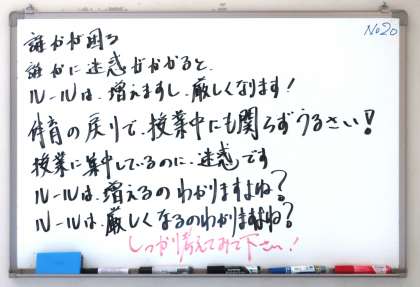 No20
誰かが困る
誰かに迷惑がかかると、
ルールは、増えますし、厳しくなります!
体育の戻りで、授業中にも関らずうるさい!
授業に集中しているのに、迷惑です
ルールは、増えるのわかりますよね?
ルールは、厳しくなるのわかりますよね?
しっかり考えてみて下さい!